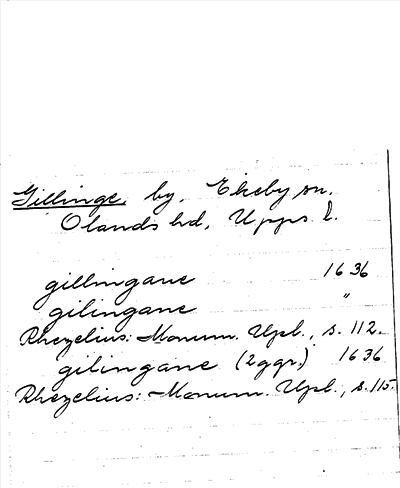 Gillinge, by, Ekeby sn.
Olands hd, Upps l.
gillingane 1636
gilingane "
Rhezelius: Monum. Upl., s. 112.
gilingane (2ggr.) 1636
Rhezelius: Monum. Upl., s. 115.